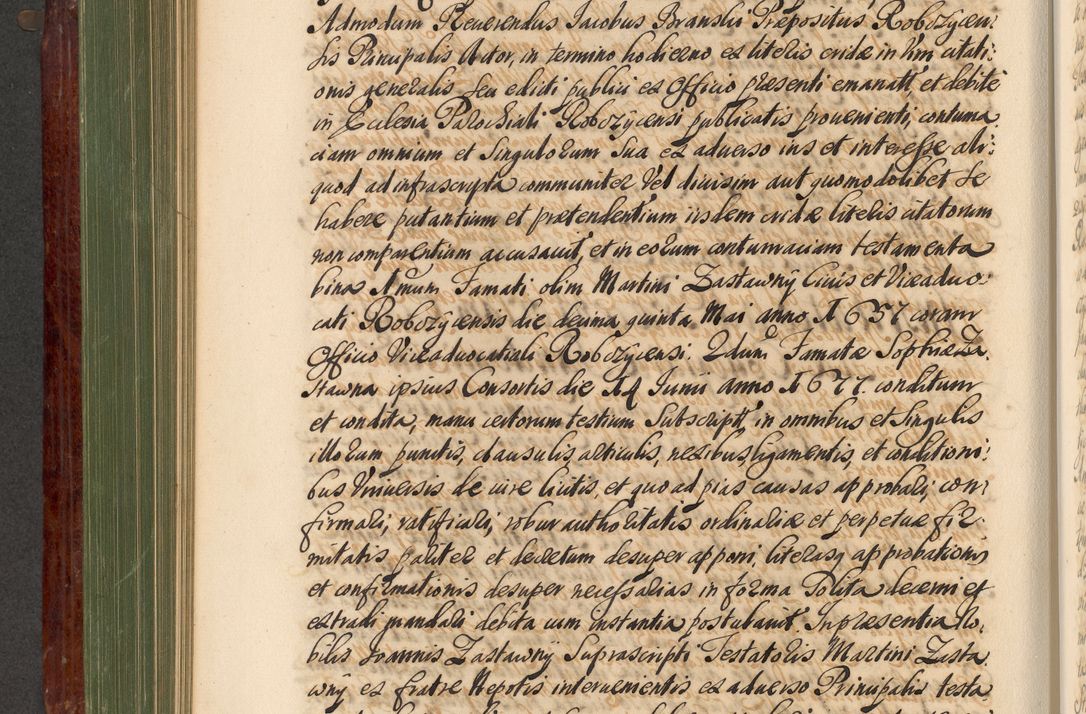 Admodum Reuerendus Jacobus Branski Præpositus Robczÿcen:
sis Principalis Actor, in termino hodierno ex literis cridæ in vim citati:
onis generalis seu edicti publici ex Officio præsenti emanatt et debite
in Ecclesia Parochiali Robczÿcensi publicatis prouenienti, contuma
ciam omnium et Singulorum Sua ex aduerso ius et interesse ali:
quod ad infrascripta communiter Vel diuisim aut quomodolibet se
habere putantium et prætendentium iisdem cridæ literis citatorum
non comparentium accusauit, et in eorum contumaciam testamenta
bina Amum Famati olim Martini Zastawnÿ Ciuis et Viceaduo:
cati Robczÿcensis die decima quinta Mai anno 1657 coram
Officio Viceaduocatiali Robczÿcensi. 2dum Famatæ Sophiæ Za
stawna ipsius Consortis die 14 Junii anno 1677. conditum
et condita, manu certorum testium Subscriptt, in omnibus et Singulis
illorum punctis, clausulis, articulis, nexibus, ligamentis, et conditioni:
bus Vniuersis de iure licitis, et quo ad pias causas approbari, con:
firmari, ratificari, robur authoritatis ordinariæ et perpetuæ fir:
mitatis pariter et decretum desuper apponi, literasq approbationis
et confirmationis desuper necessarias in forma Solita decerni et
extradi mandari debita cum instantia postulauit. In præsentia No:
bilis Joannis Zastawnÿ Suprascripti Testatoris Martini Zasta
wnÿ ex fratre Nepotis interuenientis ex aduerso Principalis testa